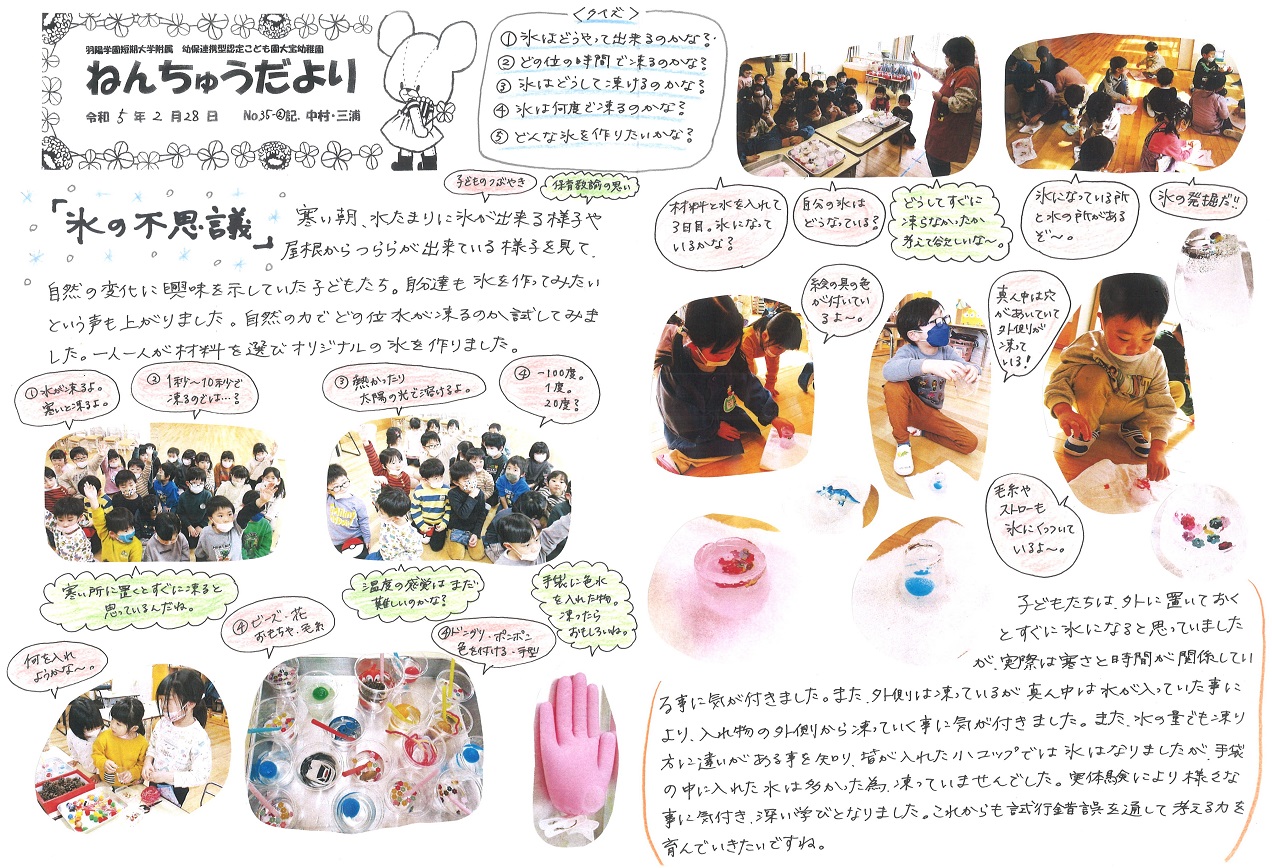 羽陽学園短期大学附属 幼保連携型認定こども園大宝幼稚園
ねんちゅうだより
令和 5 年 2 月 28 日 No.35-②記. 中村・三浦
〈クイズ〉
①氷はどうやって出来るのかな？
②どの位の時間で凍るのかな？
③氷はどうして溶けるのかな？
④氷は何度で凍るのかな？
⑤どんな氷を作りたいかな？
子どものつぶやき
保育教諭の思い
「氷の不思議」
寒い朝、水たまりに氷が出来る様子や
屋根からつららが出来ている様子を見て、
自然の変化に興味を示していた子どもたち。自分達も氷を作ってみたい
という声も上がりました。自然の力でどの位水が凍るのか試してみま
した。一人一人が材料を選びオリジナルの氷を作りました。
①水が凍るよ。
寒いと凍るよ。
②1秒～10秒で
凍るのでは…？
③熱かったり
太陽の光で溶けるよ。
④-100度。
1度。
20度？
寒い所に置くとすぐに凍ると
思っているんだね。
温度の感覚はまだ
難しいのかな？
手袋に色水
を入れた物。
凍ったら
おもしろいね。
何を入れ
ようかな～。
④ビーズ・花
おもちゃ・毛糸
④ドングリ・ポンポン
色を付ける・手型
材料と水を入れて
3日目。氷になって
いるかな？
自分の氷は
どうなっている？
どうしてすぐに
凍らなかったか
考えて欲しいな～。
氷になっている所
と水の所がある
ぞ～。
氷の発掘だ!!
絵の具の色
が付いてい
るよ～。
真ん中は穴
があいていて
外側が
凍って
いる！
毛糸や
ストローも
氷にくっついて
いるよ～。
子どもたちは、外に置いておく
とすぐに氷になると思っていました
が、実際は寒さと時間が関係してい
る事に気が付きました。また、外側は凍っているが真ん中は水が入っていた事に
より、入れ物の外側から凍っていく事に気が付きました。また、水の量でも凍り
方に違いがある事を知り、皆が入れた小コップでは氷はなりましたが、手袋
の中に入れた水は多かった為、凍っていませんでした。実体験により様々な
事に気付き、深い学びとなりました。これからも試行錯誤を通して考える力を
育んでいきたいですね。